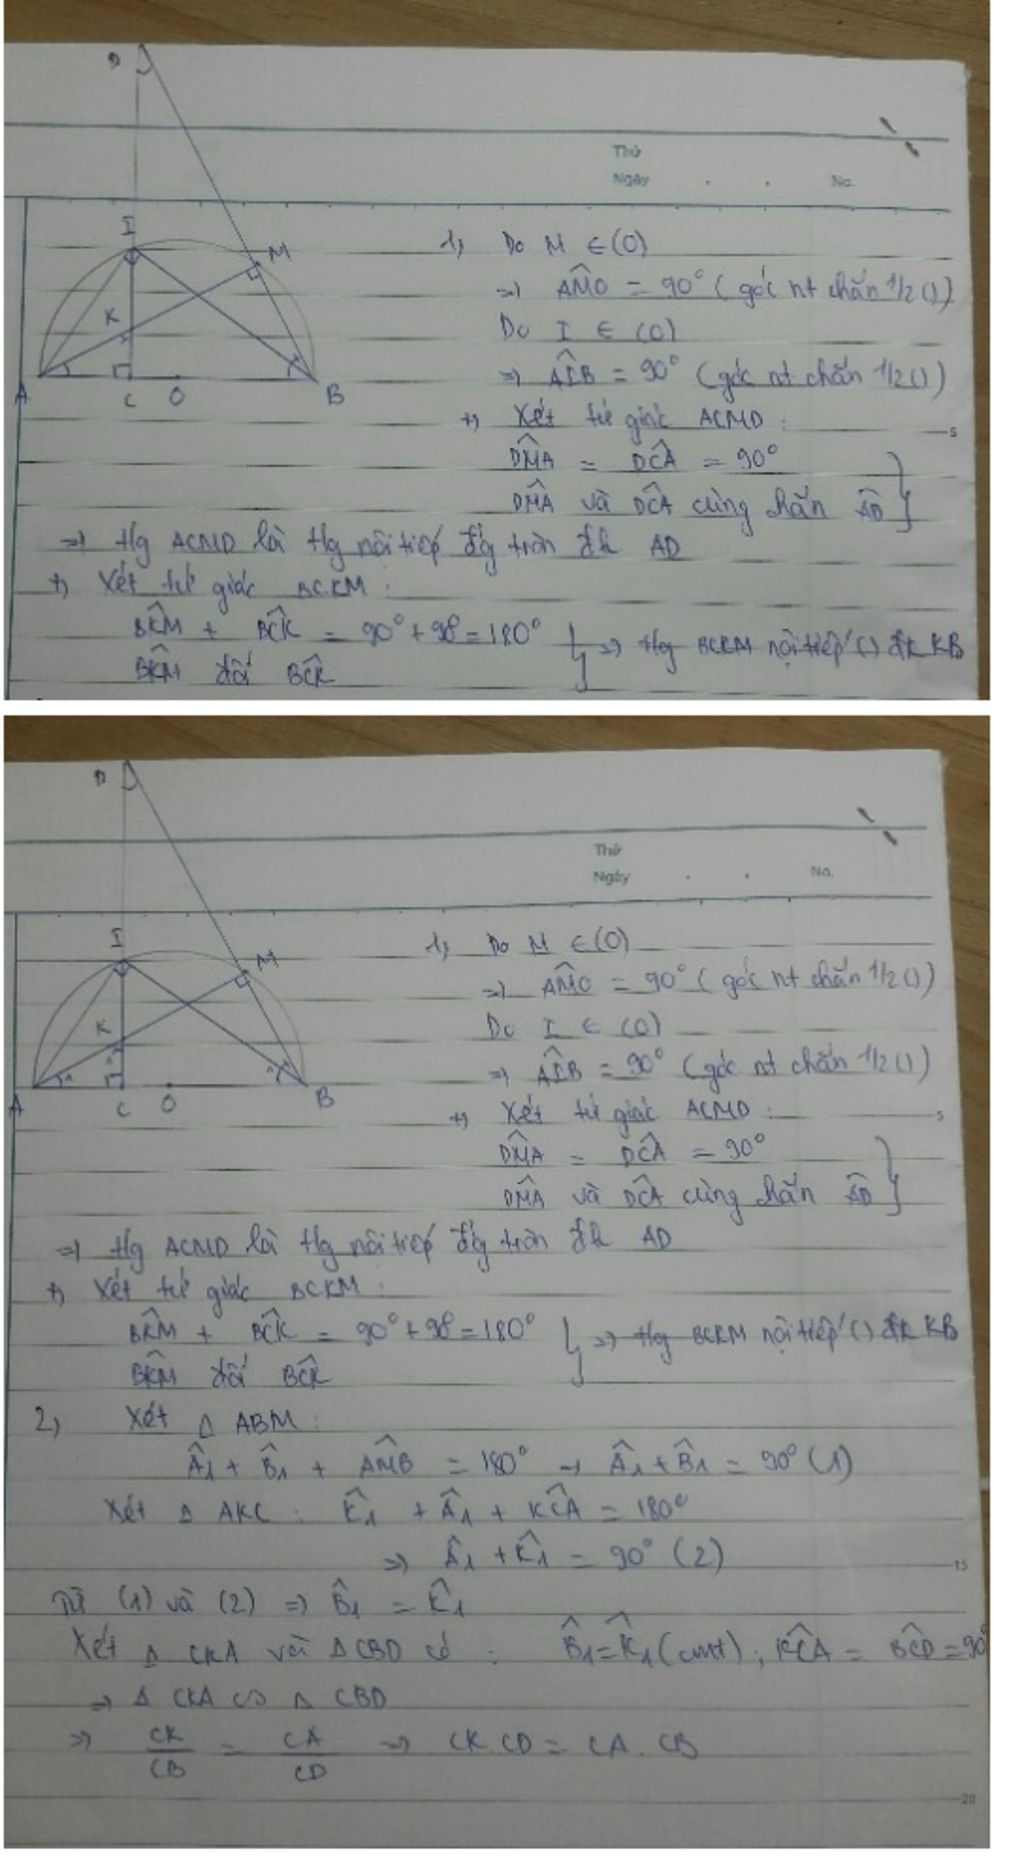 D
Thứ
Ngày . . No.
I
M
K
A C O B
1, Do M ∈ (O)
=> AM̂O = 90° (góc nt chắn 1/2 ())
Do I ∈ (O)
=> AÎB = 90° (góc nt chắn 1/2 ())
+, Xét tứ giác ACMD :
5
DM̂A = DĈA = 90°
DM̂A và DĈA cùng chắn AD̂ }
=> tg ACMD là tg nội tiếp đg tròn đk AD
+, Xét tứ giác BCKM :
BK̂M + BĈK = 90° + 90° = 180° } => tg BCKM nội tiếp () đk KB
BK̂M đối BĈK
D
Thứ
Ngày . . No.
I
M
K
A C O B
1, Do M ∈ (O)
=> AM̂O = 90° (góc nt chắn 1/2 ())
Do I ∈ (O)
=> AÎB = 90° (góc nt chắn 1/2 ())
+, Xét tứ giác ACMD :
5
DM̂A = DĈA = 90°
DM̂A và DĈA cùng chắn AD̂ }
=> tg ACMD là tg nội tiếp đg tròn đk AD
+, Xét tứ giác BCKM :
BK̂M + BĈK = 90° + 90° = 180° } => tg BCKM nội tiếp () đk KB
BK̂M đối BĈK
2, Xét Δ ABM :
Â1 + B̂1 + AM̂B = 180° → Â1 + B̂1 = 90° (1)
Xét Δ AKC : K̂1 + Â1 + KĈA = 180°
=> Â1 + K̂1 = 90° (2)
15
Từ (1) và (2) => B̂1 = K̂1
Xét Δ CKA và Δ CBD có : B̂1 = K̂1 (cmt) ; KĈA = BĈD = 90°
=> Δ CKA ∽ Δ CBD
=> CK/CB = CA/CD => CK.CD = CA.CB
20